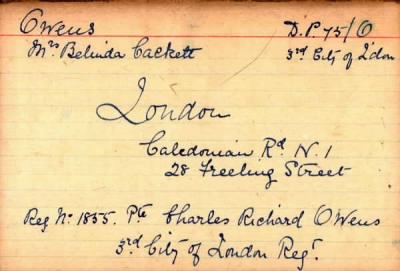 Owens D.P. 75/O
Mrs Belinda Cackett 3rd City of L'don
London
Caledonian Rd N.1
28 Freeling Street
Reg No 1855. Pte Charles Richard Owens
3rd City of London Regt.